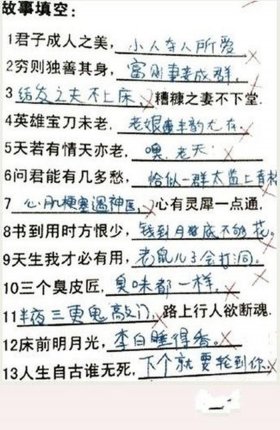 故事填空：
1君子成人之美，小人夺人所爱
2穷则独善其身，富则妻妾成群.
3 结发之夫不上床，糟糠之妻不下堂.
4英雄宝刀未老，老娘丰韵尤存.
5天若有情天亦老，噢 老天
6问君能有几多愁，恰似一群太监上青楼
7 心肌梗塞遇神医，心有灵犀一点通.
8书到用时方恨少，钱到月底不够花.
9天生我才必有用，老鼠儿子会打洞.
10三个臭皮匠，臭味都一样.
11半夜三更鬼敲门，路上行人欲断魂.
12床前明月光，李白睡得香.
13人生自古谁无死，下个就要轮到你.